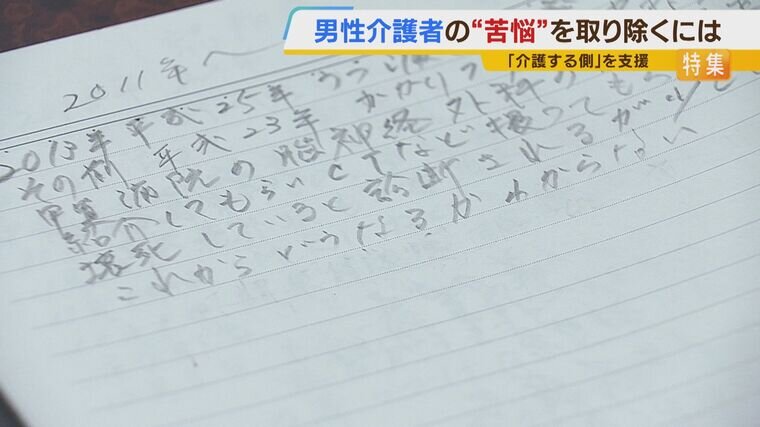 男性介護者の“苦悩”を取り除くには
「介護する側」を支援
特集
2011年〜
2013年 平成25年 うつ
その前 平成23年 かかり
甲 病院の脳神経
紹介してもらいCTなど撮ってもら
壊死していると診断されるが
これからどうなるかわからない